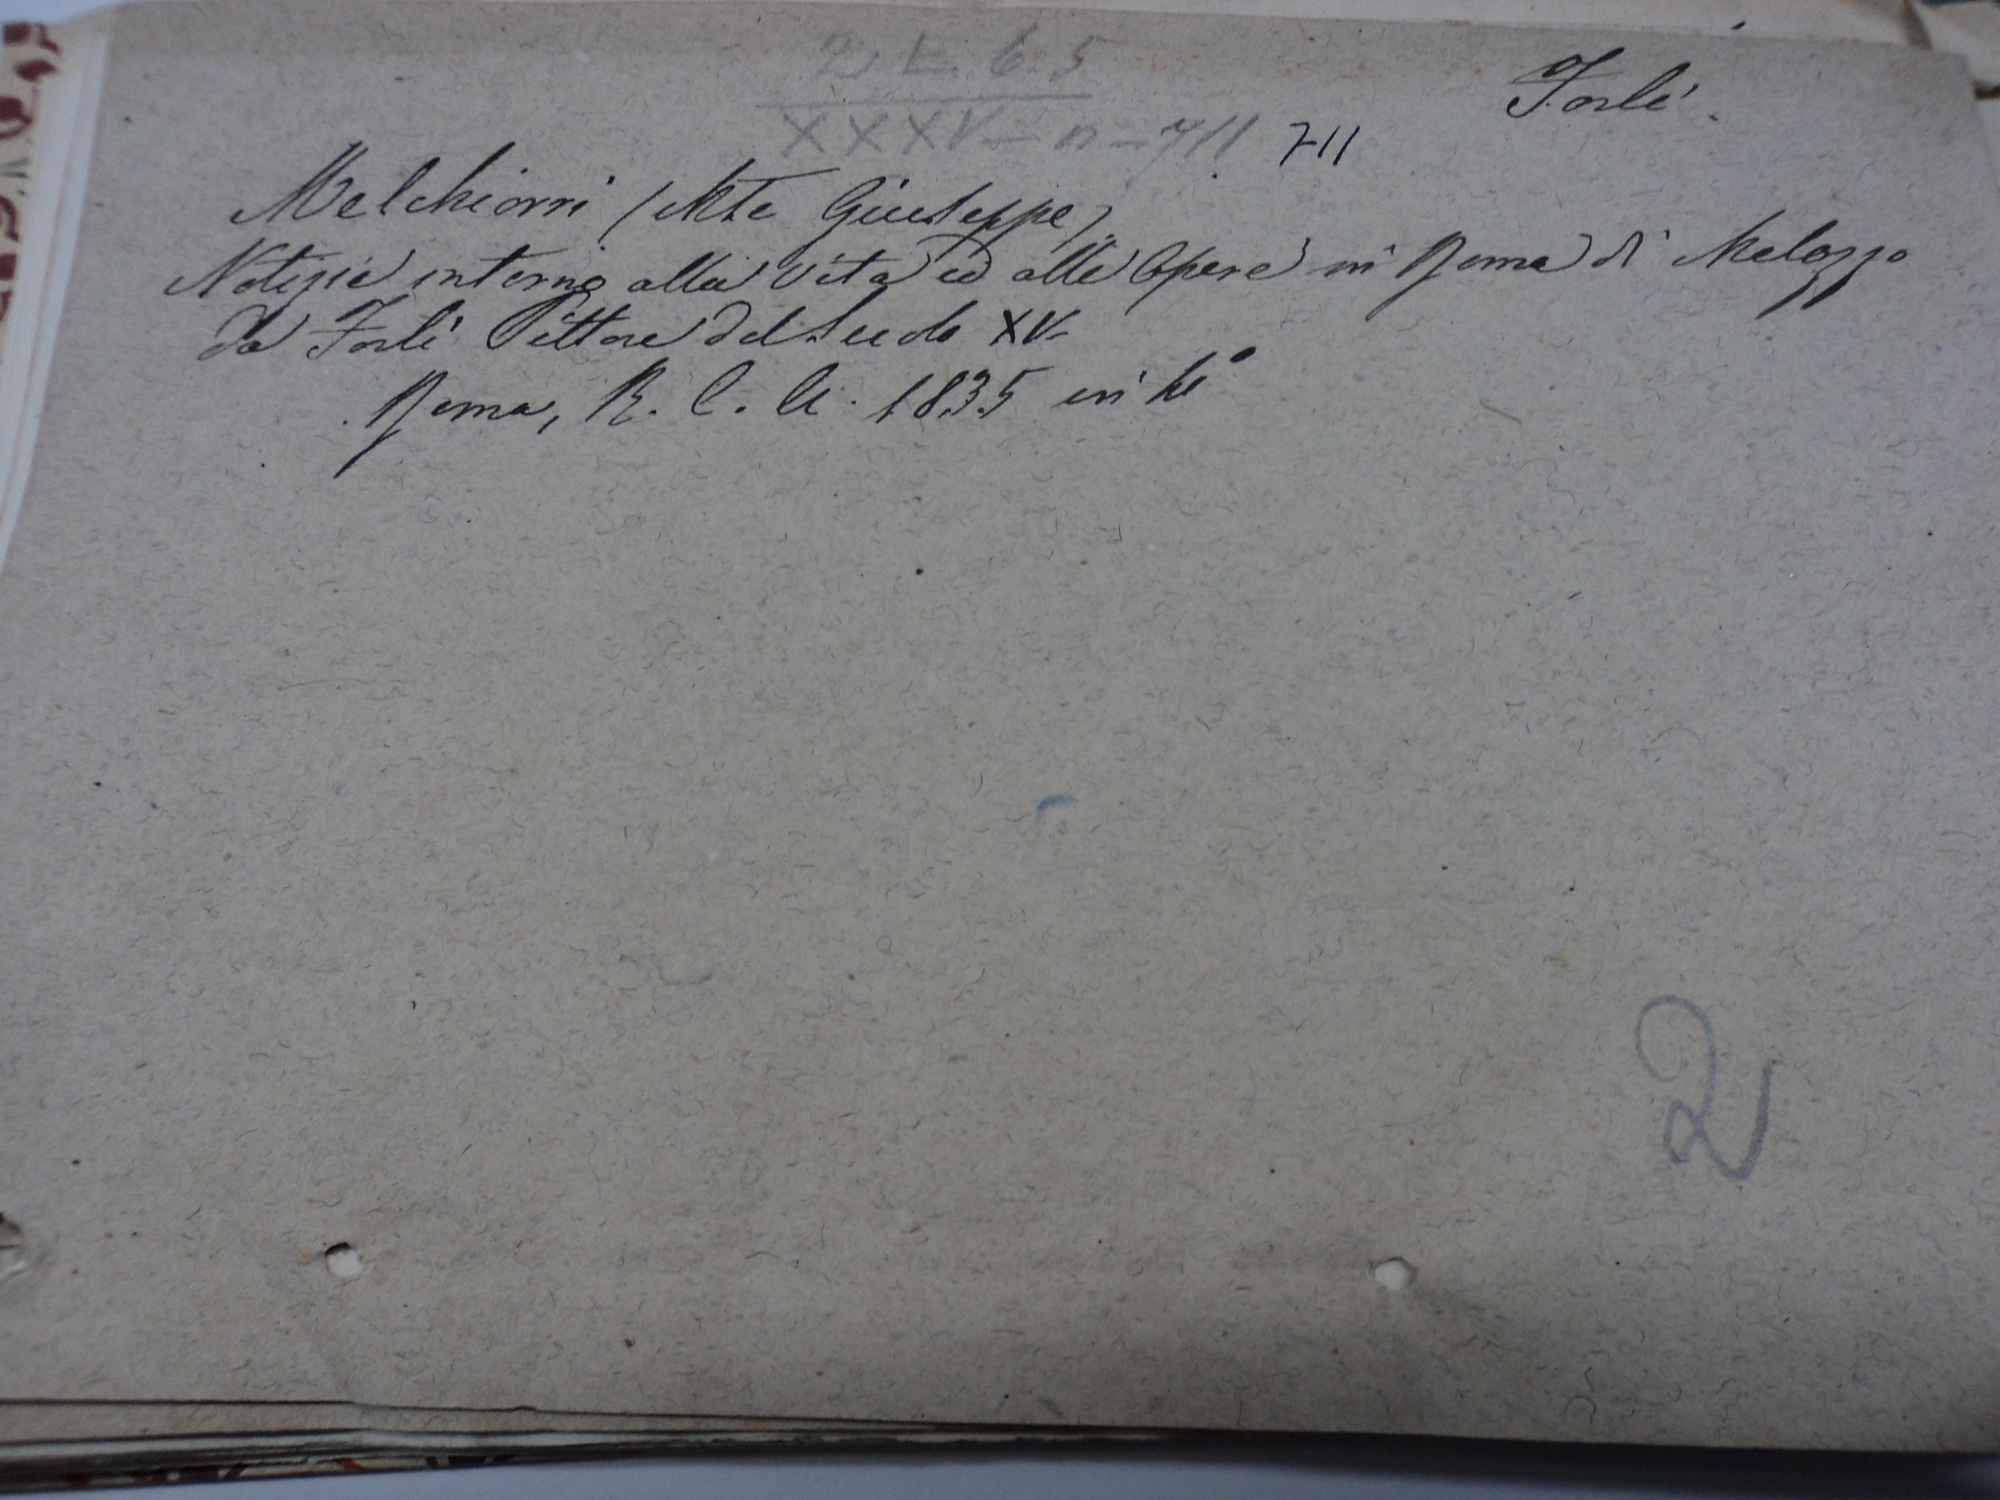 2 L. 6. 5
Forlì.
XXXV - n - 711 711
Melchiorri (Mse Giuseppe)
Notizie intorno alla vita ed alle opere in Roma di Melozzo
da Forlì Pittore del Secolo XV.
Roma, R. C. A. 1835 in 4°
2